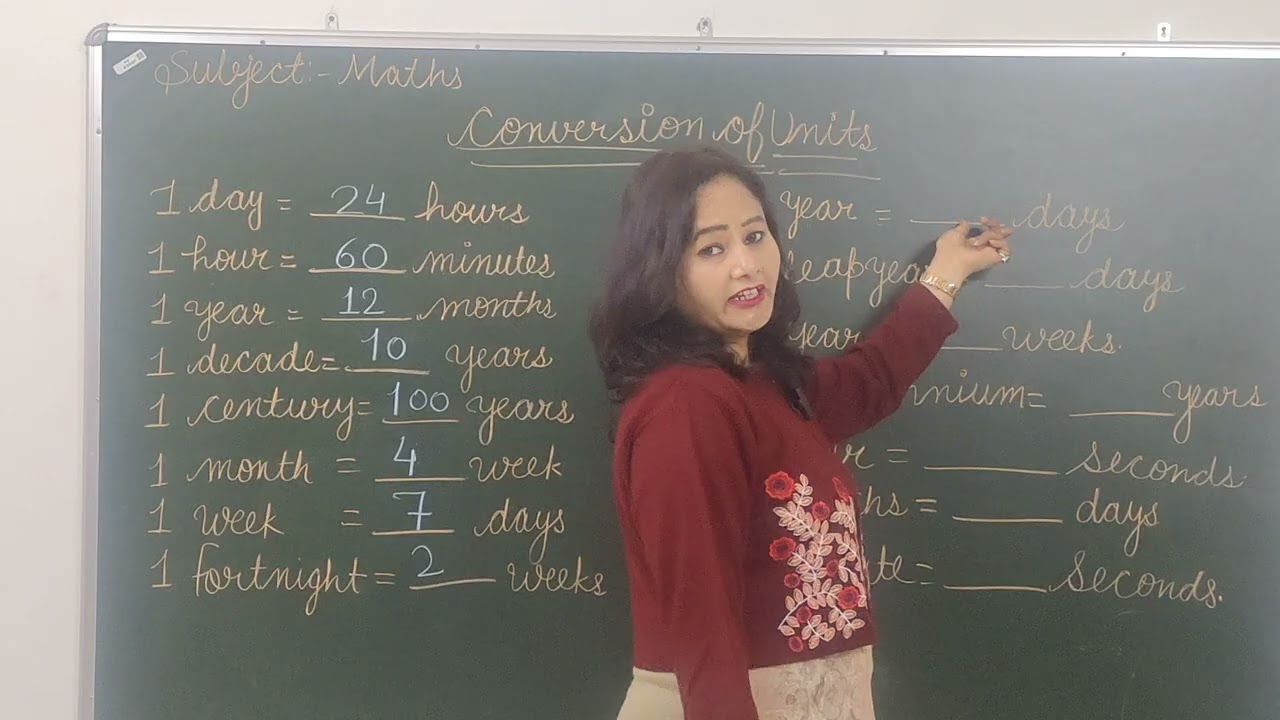 Subject:- Maths
Conversion of Units
1 day = 24 hours
1 hour = 60 minutes
1 year = 12 months
1 decade = 10 years
1 century = 100 years
1 month = 4 week
1 week = 7 days
1 fortnight = 2 weeks
year = ____ days
leap year ____ days
year ____ weeks.
nnium = ____ years
= ____ seconds.
ths = ____ days
te = ____ Seconds.